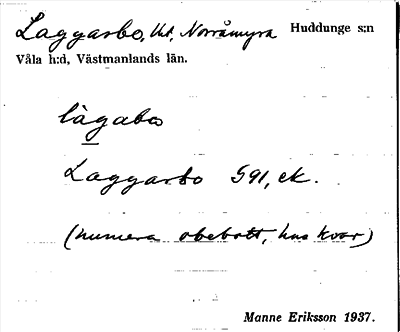 Laggarbo, Ut. Norråmyra Huddunge s:n
Våla h:d, Västmanlands län.
làgabo
Laggarbo 591, ek.
(numera obebott, hus kvar)
Manne Eriksson 1937.